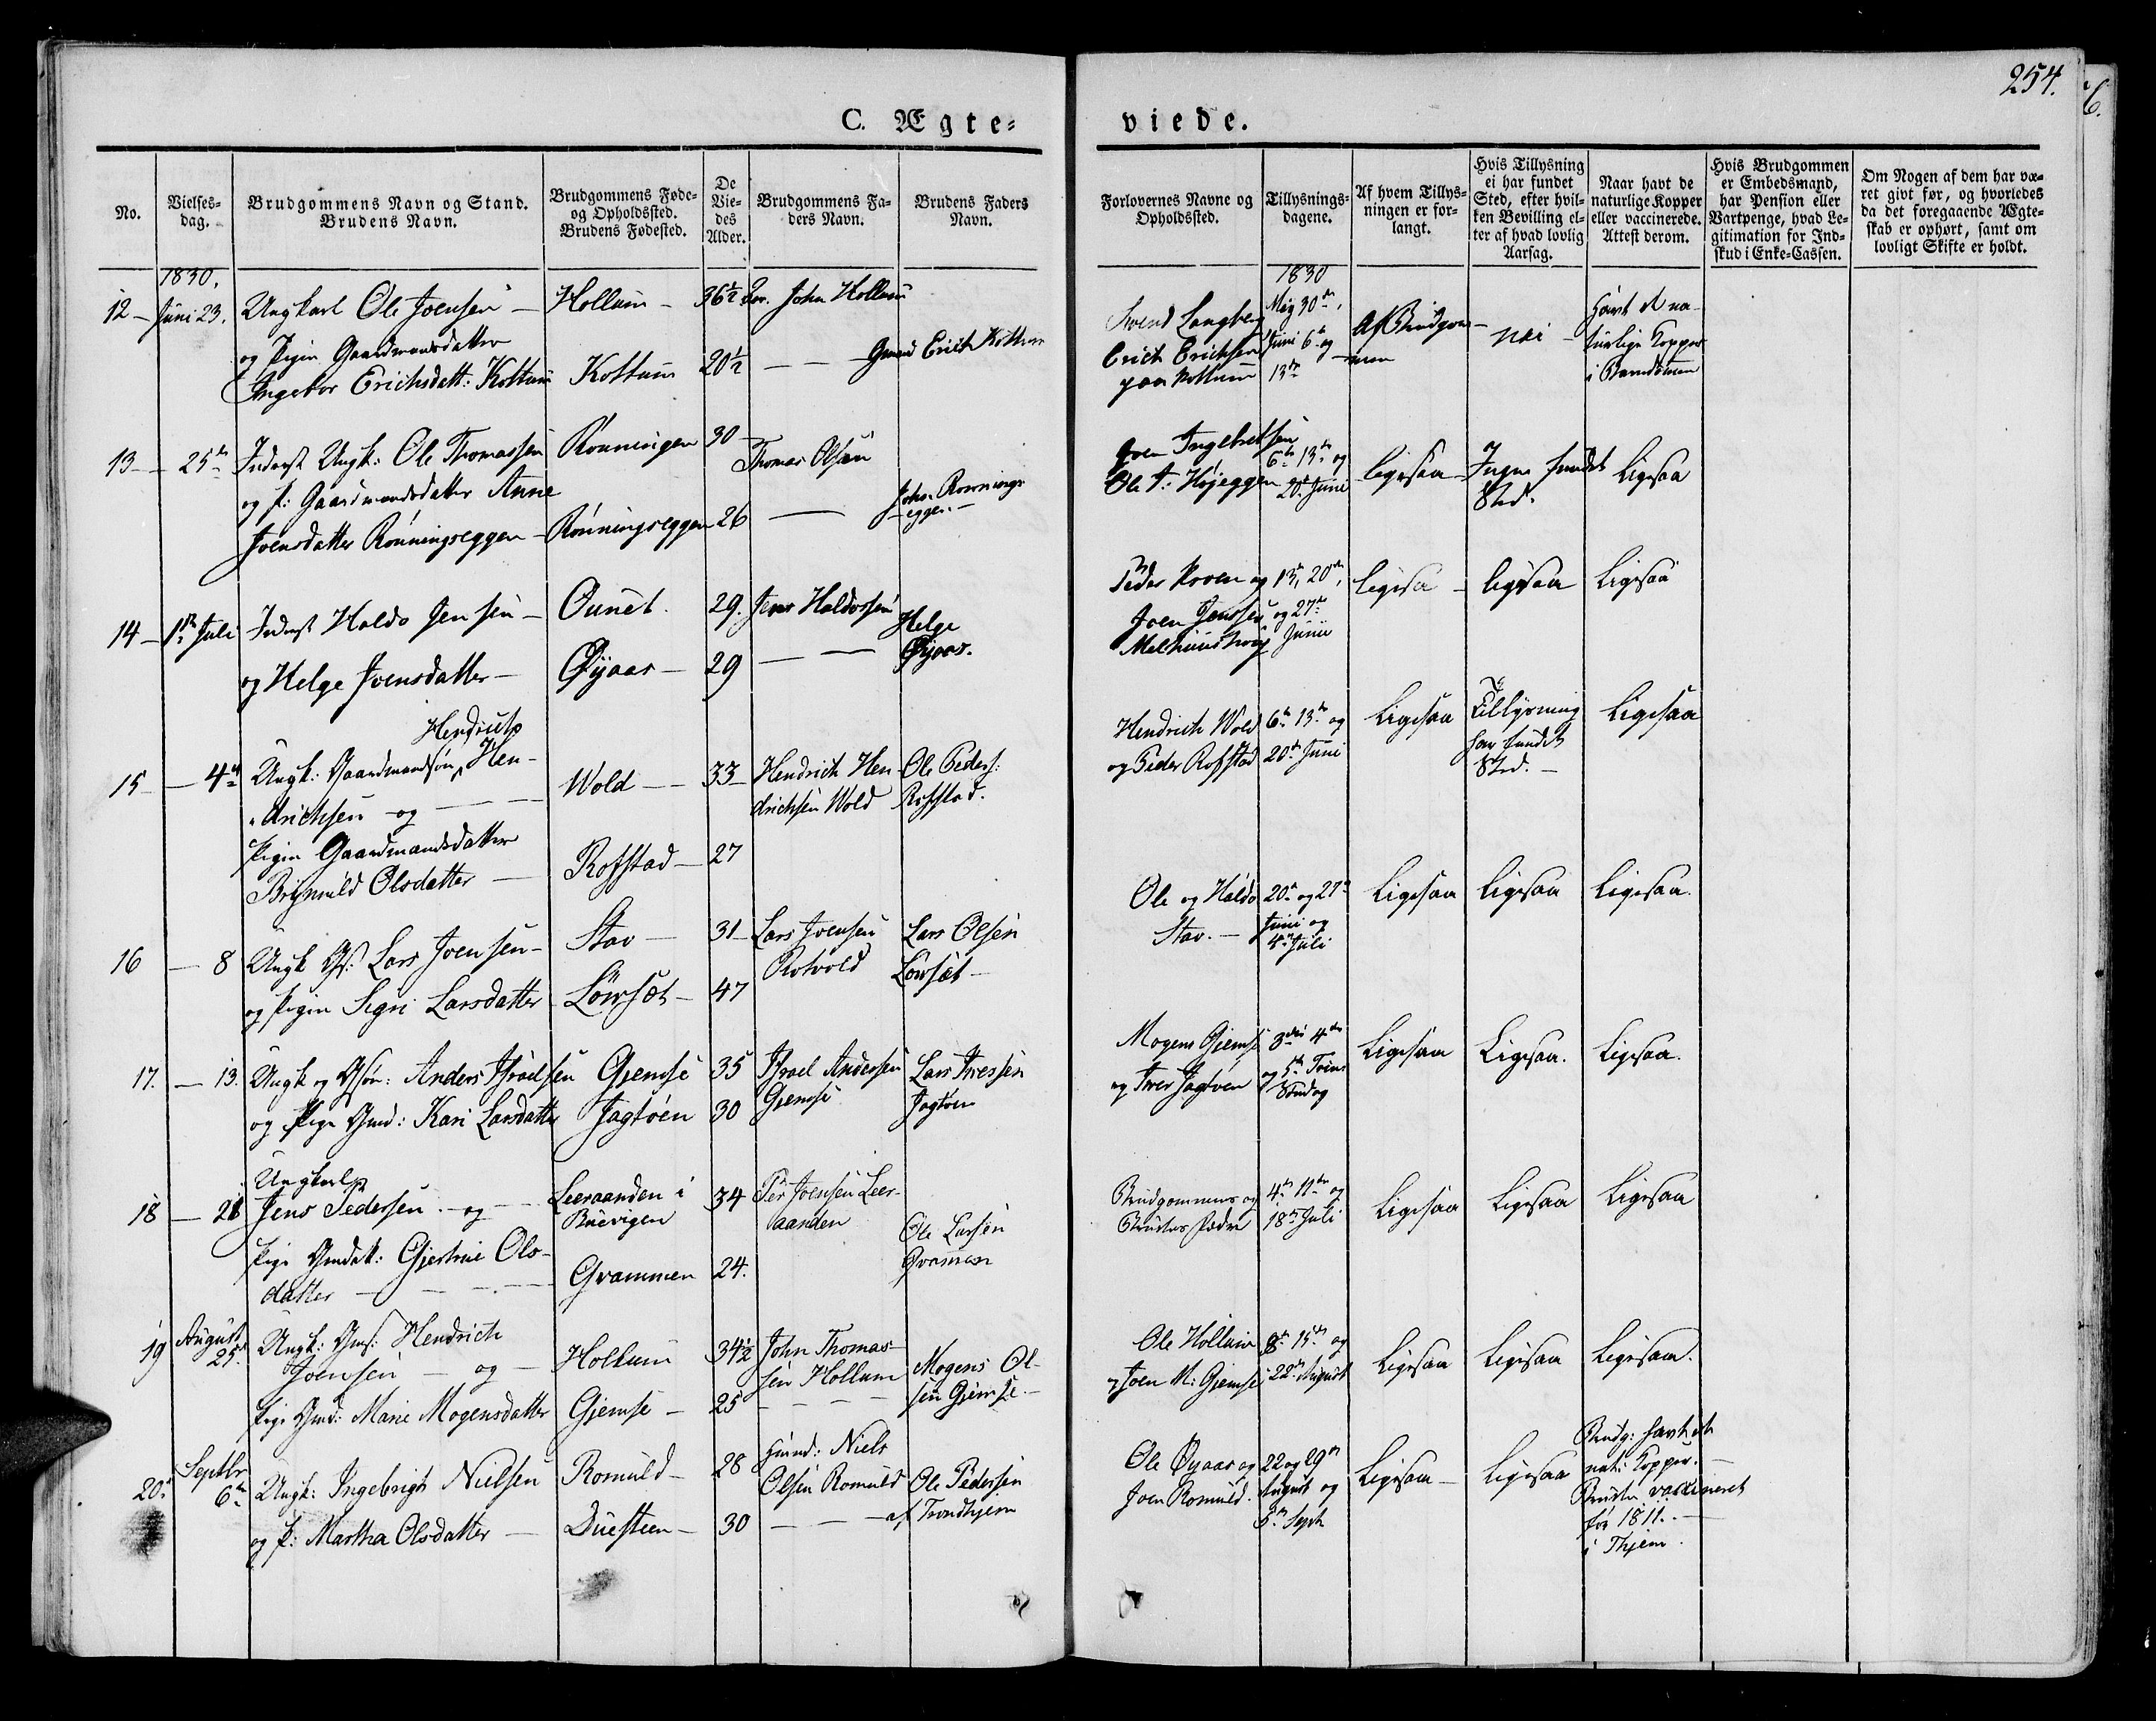 254.
C. Ægte-
viede.
No.
Vielses-
dag.
Brudgommens Navn og Stand.
Brudens Navn.
Brudgommens Føde-
og Opholdssted.
Brudens Fødested.
De
Vie-
des
Alder.
Brudgommens Fa-
ders Navn.
Brudens Faders
Navn.
Forlovernes Navne og
Opholdssted.
Tillysnings-
dagene.
Af hvem Tillys-
ningen er for-
langt.
Hvis Tillysning
ei har fundet
Sted, efter hvil-
ken Bevilling el-
ler af hvad lovlig
Aarsag.
Naar havt de
naturlige Kopper
eller vaccinerede.
Attest derom.
Hvis Brudgommen
er Embedsmand,
har Pension eller
Vartpenge, hvad Le-
gitimation for Ind-
skud i Enke-Cassen.
Om Nogen af dem har væ-
ret givt før, og hvorledes
da det foregaaende Ægte-
skab er ophørt, samt om
lovligt Skifte er holdt.
1830.
12 - Juni 23.
Ungkarl Ole Joensen -
og Pigen Gaardmandsdatter
Ingebor Erichsdatt: Kottum
Hollum -
Kottum
36½
20½
John Hollum
Gmand Erich Kottum
1830
Svend Langberg
Erich Erichsen
paa Kottum
May 30te,
Juni 6te og
13de
Af Brudgom-
men
Nei -
Havt de na-
turlige Kopper
i Barndommen
13 - 25de
Inderst Ungk: Ole Thomassen
og P: Gaardmandsdatter Anne
Joensdatter Rønningseggen -
Rønningen
Rønningseggen
30
26
Thomas Olsen
John Rønnings-
eggen -
Joen Ingebretsen
Ole T: Høyeggen
6te 13de og
20de Juni
ligesaa
fundet
Sted.
Ligesaa
14 - 1ste Juli
Inderst Haldo Jensen -
og Helge Joensdatter -
Ounet.
Øyaas -
29.
29
Jens Haldossen
Helge
Øyaas.
Peder og
Joen Jenssen
13de, 20de,
og 27de
Junii
ligesaa -
ligesaa
Ligesaa
15 - 4de
Hendrich
Ungk: Gaardmandsøn Hen-
drichsen - og
Pigen Gaardmandsdatter
Brynnild Olsdatter -
Wold -
Rofstad -
33 -
27
Hendrich Hen
drichsen Wold
Ole Peders:
Rofstad.
Hendrich Wold
og Peder Rofstad
6te 13de og
20de Juni
Ligesaa
Tillysning
har fundet
Sted. -
Ligesaa
16 - 8
Ungk Gs: Lars Joensen -
og Pigen Segri Larsdatter
Stav -
Løvset -
31 -
47
Lars Joensen
Rotvold
Lars Olsen
Løvset -
Ole og Haldo
Stav. -
20de og 27de
Juni og
4de Juli
Ligesaa
Ligesaa
Ligesaa.
17. - 13.
Ungk og Gsøn: Anders Israelsen
og Pige Gmd: Kari Larsdatter
Gjemse
Jagtøen
35
30
Israel Andersen
Gjemse
Lars Iversen
Jagtøen
Mogens Gjemse
og Iver Jagtøen
3die 4de
og 5te Trin:
Søndag
Ligesaa
Ligesaa.
Ligesaa.
18 - 21
Ungkarl
Jens Pedersen - og
Pige Gmdatt: Gjertrui Ols-
datter -
Leeraanden i
Buevigen
Grammen
34
24.
Per Joensen Leer-
aanden
Ole Larsen
Grammen
Brudgommens og
Brudens Fædre
4de 11te og
18de Juli
Ligesaa
Ligesaa
Ligesaa
19 August
25de
Ungk: Gms: Hendrich
Joensen - og
Pige Gmd: Marie Mogensdatter
Hollum
Gjemse -
34½
25
John Thomas-
sen Hollum
Mogens Ol-
sen Gjemse -
Ole Hollum
og Joen M: Gjemse
8de 15de og
22de August
Ligesaa
Ligesaa
Ligesaa.
20. Septbr
6te
Ungk: Ingebrigt Nielsen
og P: Martha Olsdatter -
Romuld -
Duesteen -
28
30
Huusmd: Niels
Olsen Romuld
Ole Pedersen
af Trondhjem
Ole Øyaas og
Joen Romuld.
22 og 29de
August og
5te Septr
Ligesaa -
Ligesaa
Brudg: havt de
nat: Kopper. -
Bruden vaccineret
før 1811. -
i Thjem.